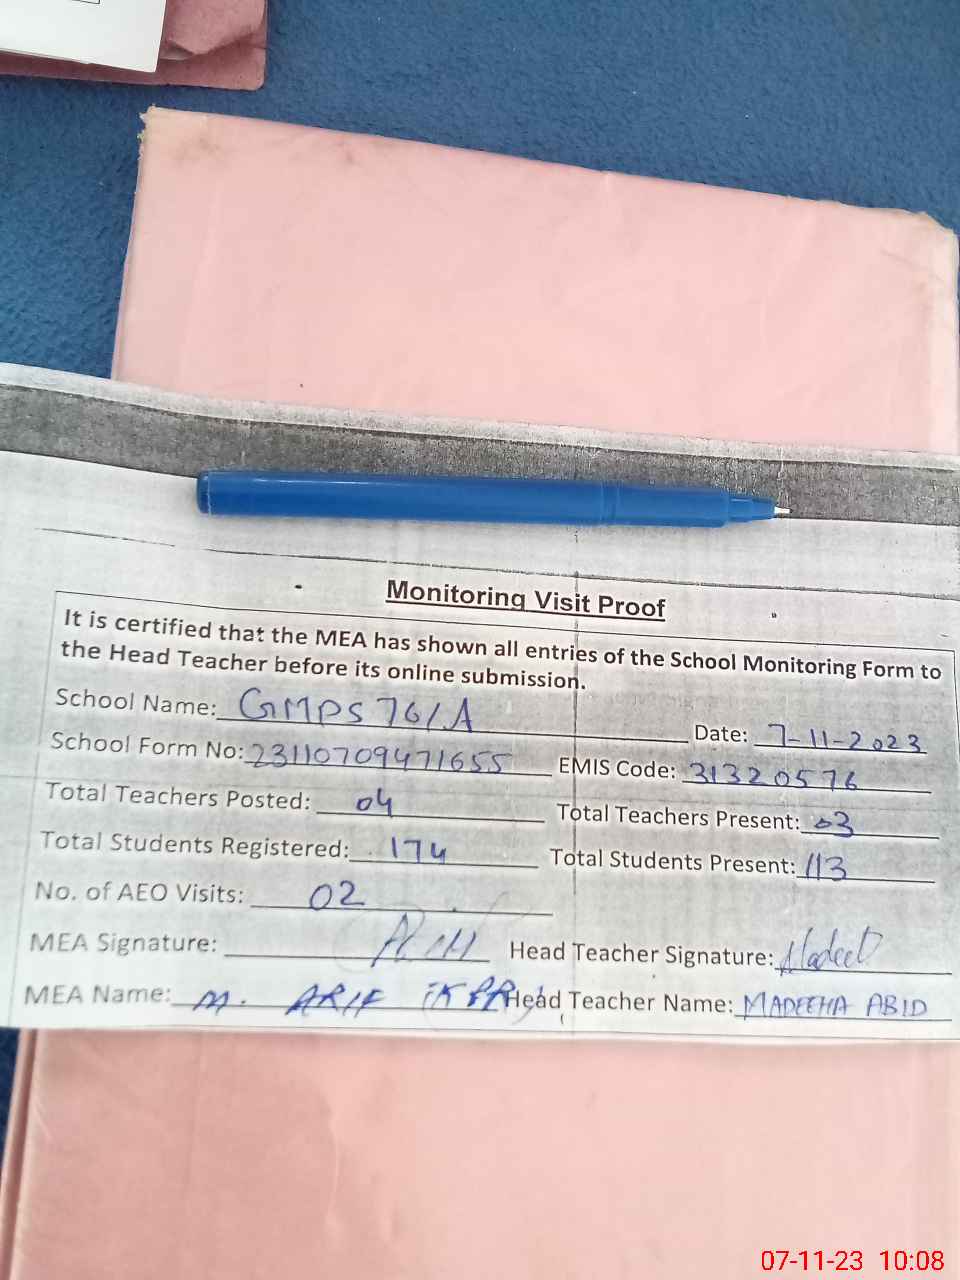 Monitoring Visit Proof
It is certified that the MEA has shown all entries of the School Monitoring Form to
the Head Teacher before its online submission.
School Name: GMPS 76/A Date: 7-11-2023
School Form No: 23110709471655 EMIS Code: 31320576
Total Teachers Posted: 04 Total Teachers Present: 03
Total Students Registered: 174 Total Students Present: 113
No. of AEO Visits: 02
MEA Signature: Head Teacher Signature:
MEA Name: M. ARIF Head Teacher Name: MADEEHA ABID
07-11-23 10:08